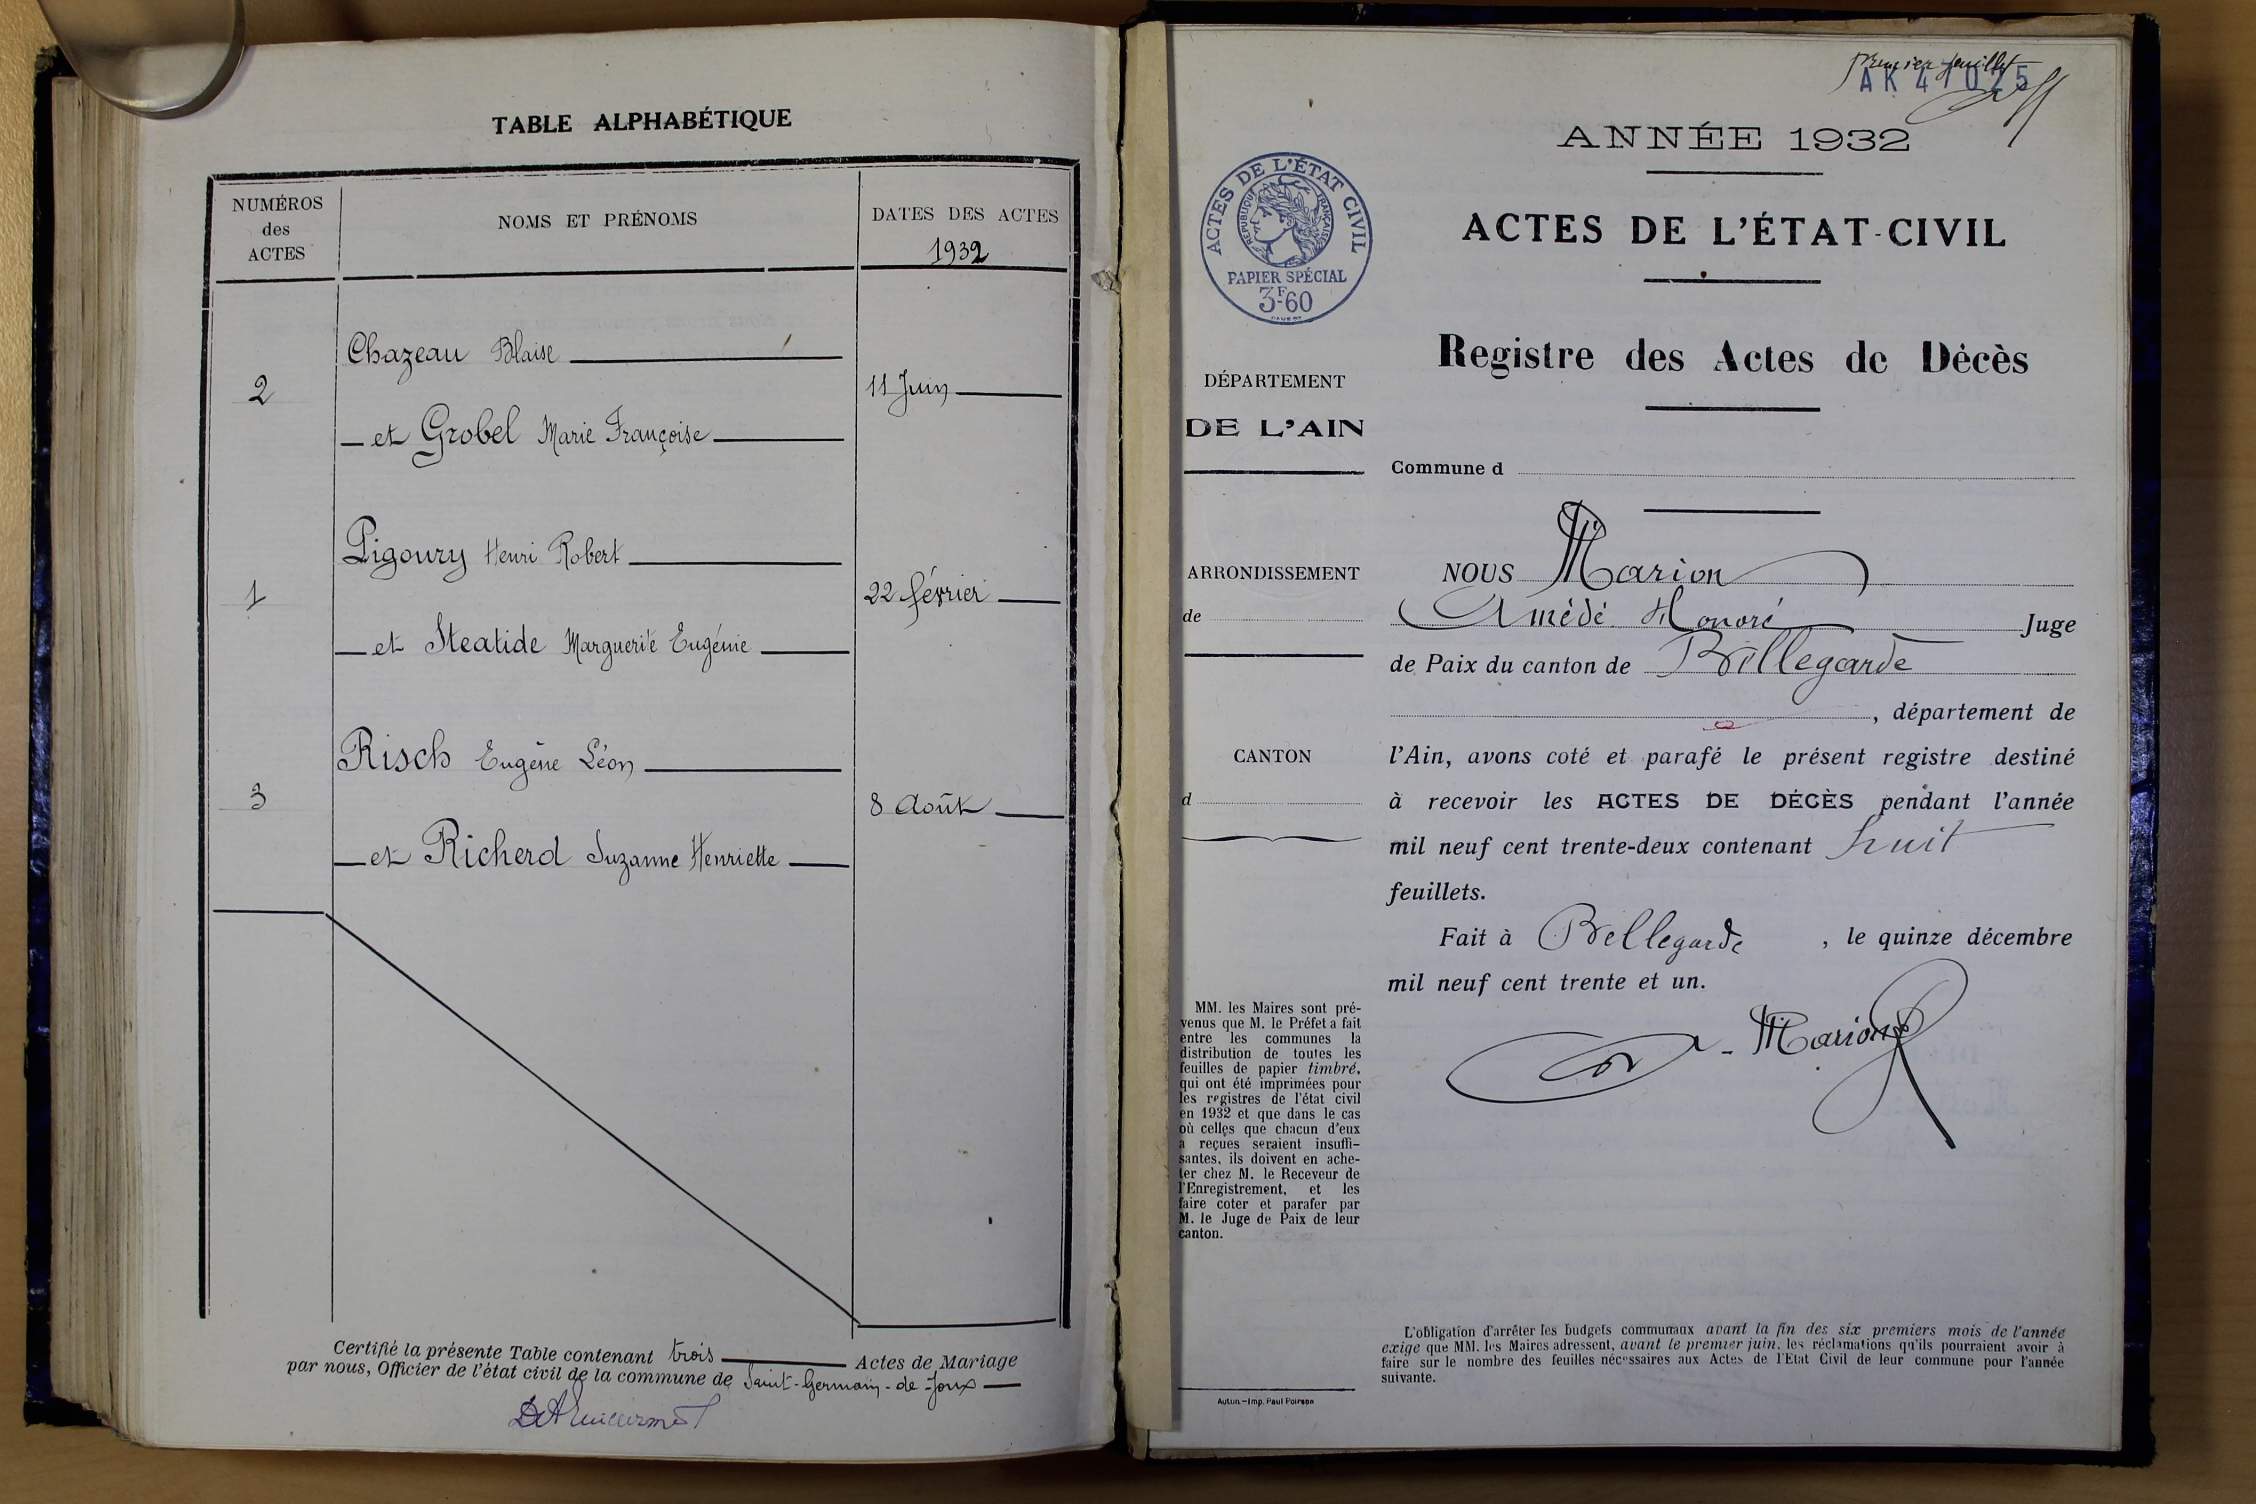 TABLE ALPHABÉTIQUE
NUMÉROS
des
ACTES
NOMS ET PRÉNOMS
DATES DES ACTES
1932
Chazeau Blaise
2
11 Juin
et Grobel Marie Françoise
Pigoury Henri Robert
1
22 février
et Steatide Marguerite Eugénie
Risch Eugène Léon
3
8 Août
et Richerd Suzanne Henriette
Certifié la présente Table contenant trois Actes de Mariage
par nous, Officier de l'état civil de la commune de Saint-Germain-de-Joux
premier feuillet
AK 47025
ANNÉE 1932
ACTES DE L'ÉTAT CIVIL
RÉPUBLIQUE FRANÇAISE
PAPIER SPÉCIAL
3F.60
ACTES DE L'ÉTAT-CIVIL
Registre des Actes de Décès
DÉPARTEMENT
DE L'AIN
Commune d
ARRONDISSEMENT
de
CANTON
d
NOUS Marion
Amédé Honoré Juge
de Paix du canton de Bellegarde
, département de
l'Ain, avons coté et parafé le présent registre destiné
à recevoir les ACTES DE DÉCÈS pendant l'année
mil neuf cent trente-deux contenant huit
feuillets.
Fait à Bellegarde , le quinze décembre
mil neuf cent trente et un.
Marion
MM. les Maires sont pré-
venus que M. le Préfet a fait
entre les communes la
distribution de toutes les
feuilles de papier timbré,
qui ont été imprimées pour
les registres de l'état civil
en 1932 et que dans le cas
où celles que chacun d'eux
a reçues seraient insuffi-
santes, ils doivent en ache-
ter chez M. le Receveur de
l'Enregistrement, et les
faire coter et parafer par
M. le Juge de Paix de leur
canton.
L'obligation d'arrêter les budgets communaux avant la fin des six premiers mois de l'année
exige que MM. les Maires adressent, avant le premier juin, les réclamations qu'ils pourraient avoir à
faire sur le nombre des feuilles nécessaires aux Actes de l'Etat Civil de leur commune pour l'année
suivante.
Autun.—Imp. Paul Poirson